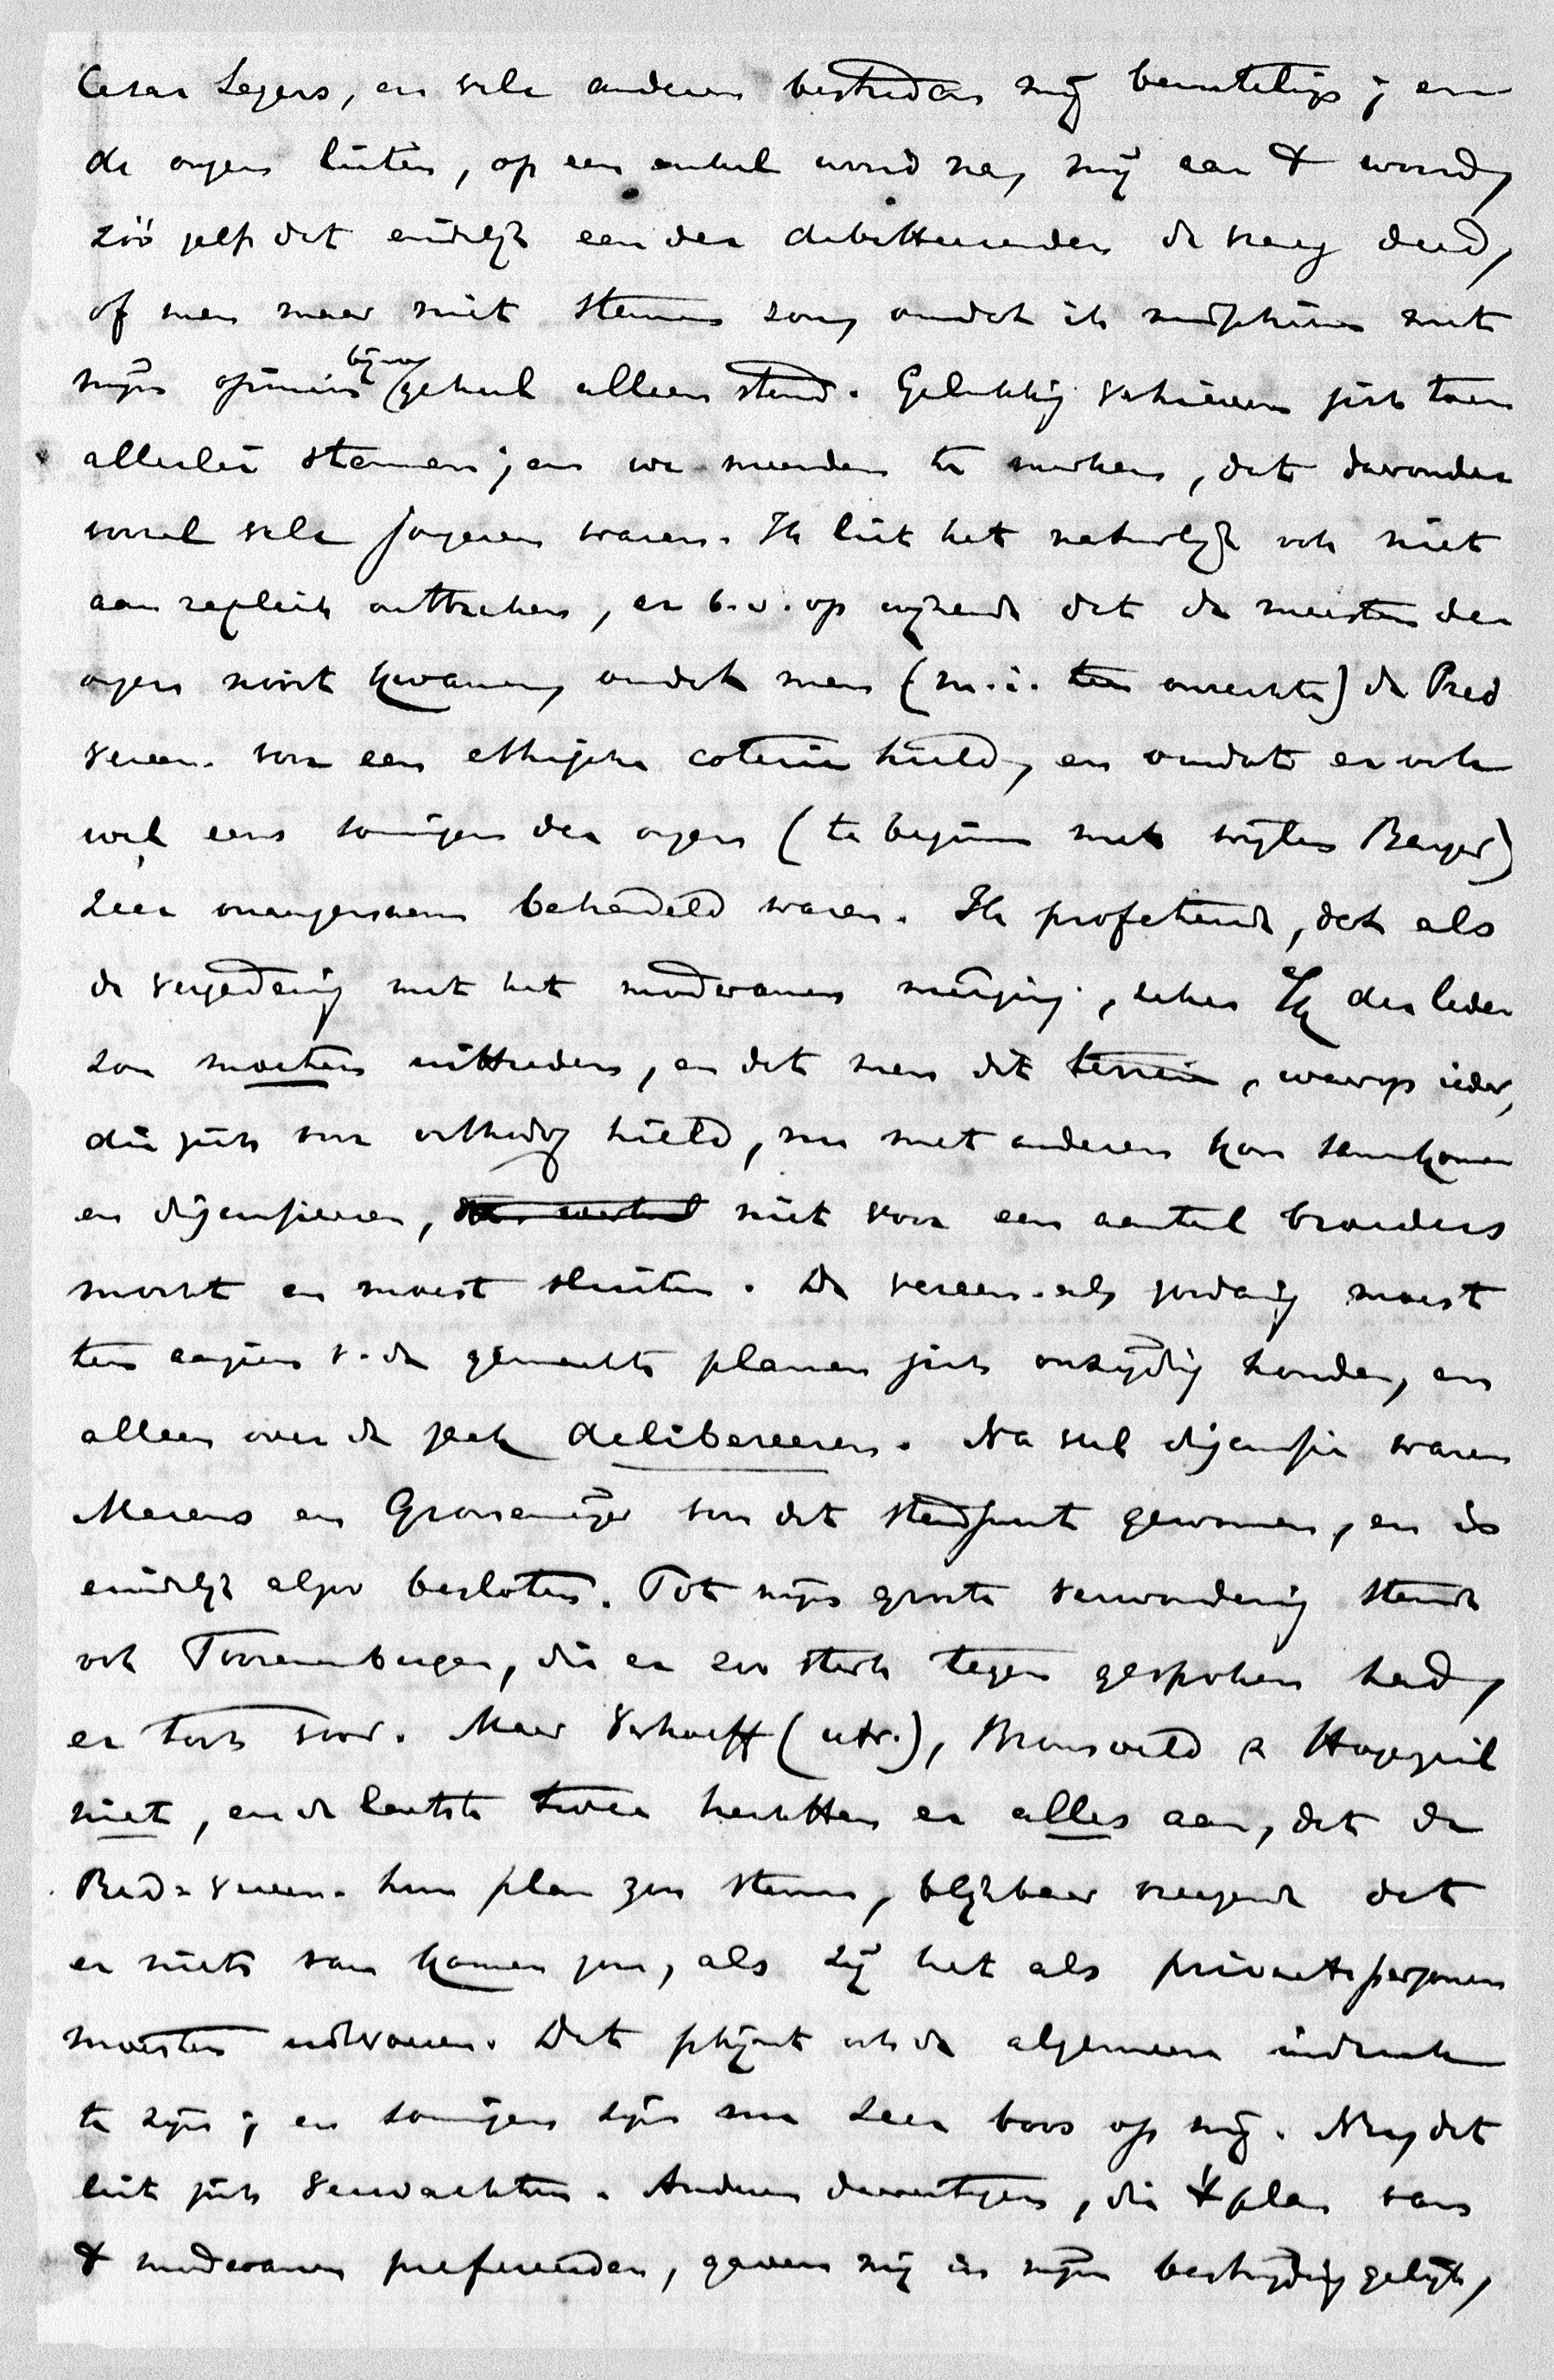 Cesar Segers, en vele anderen bestreden mij beurtelings; en
de onzen lieten, op een enkel woord na, mij aan 't woord,
zóó zelfs dat eindelijk een der debatteerenden de vraag deed,
of men maar niet stemmen zou, omdat ik misschien met
mijn opinie bijna geheel alleen stond. Gelukkig verhieven zich toen
allerlei stemmen; en we meenden te merken, dat daaronder
vooral vele jongeren waren. Ik liet het natuurlijk ook niet
aan repliek ontbreken, er b.v. op wijzende dat de meesten der
onzen nooit kwamen, omdat men (m.i. ten onrechte) de Pred
vereen. voor een ethische coterie hield, en omdat er ook
wel eens sommigen der onzen (te beginnen met wijlen Beyer)
zeer onaangenaam behandeld waren. Ik profeteerde, dat als
de vergadering met het moderamen meêging, zeker 1/4 der leden
zou moeten uittreden, en dat men dit terrein, waarop ieder,
die zich voor orthodox hield, nu met anderen kon samenkomen
en discussieeren, niet voor een aantal broeders
mocht en moest sluiten. De vereen. als zoodanig moest
ten aanzien v. de gemaakte plannen zich onzijdig houden, en
alleen over de zaak delibereeren. Na veel discussie waren
Merens en Gronemeijer voor dat standpunt gewonnen, en is
eindelijk alzoo besloten. Tot mijn groote verwondering stemde
ook Toorenenbergen, die er zoo sterk tegen gesproken had,
er toch voor. Maar Verhoeff (utr.), Bronsveld & Hoogewil
niet, en de laatste twee hechtten er alles aan, dat de
Pred. vereen. hun plan zou steunen, blijkbaar vreezende dat
er niets van komen zou, als zij het als privaatpersonen
moesten uitvoeren. Dat schijnt ook de algemeene indruk
te zijn; en sommigen zijn nu zeer boos op mij. Nu, dat
liet zich verwachten. Anderen daarentegen, die 't plan van
't moderamen prefereerden, gaven mij in mijn bestrijding gelijk,